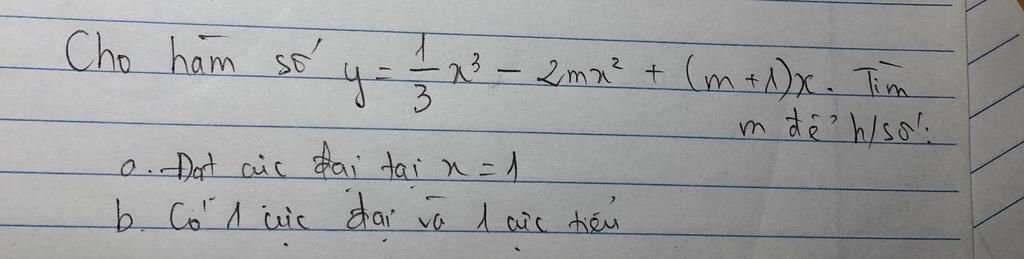 Cho hàm số y = \frac{1}{3}x³ - 2mx² + (m+1)x. Tìm
m để h/số:
a. Đạt cực đại tại x = 1
b. Có 1 cực đại và 1 cực tiểu